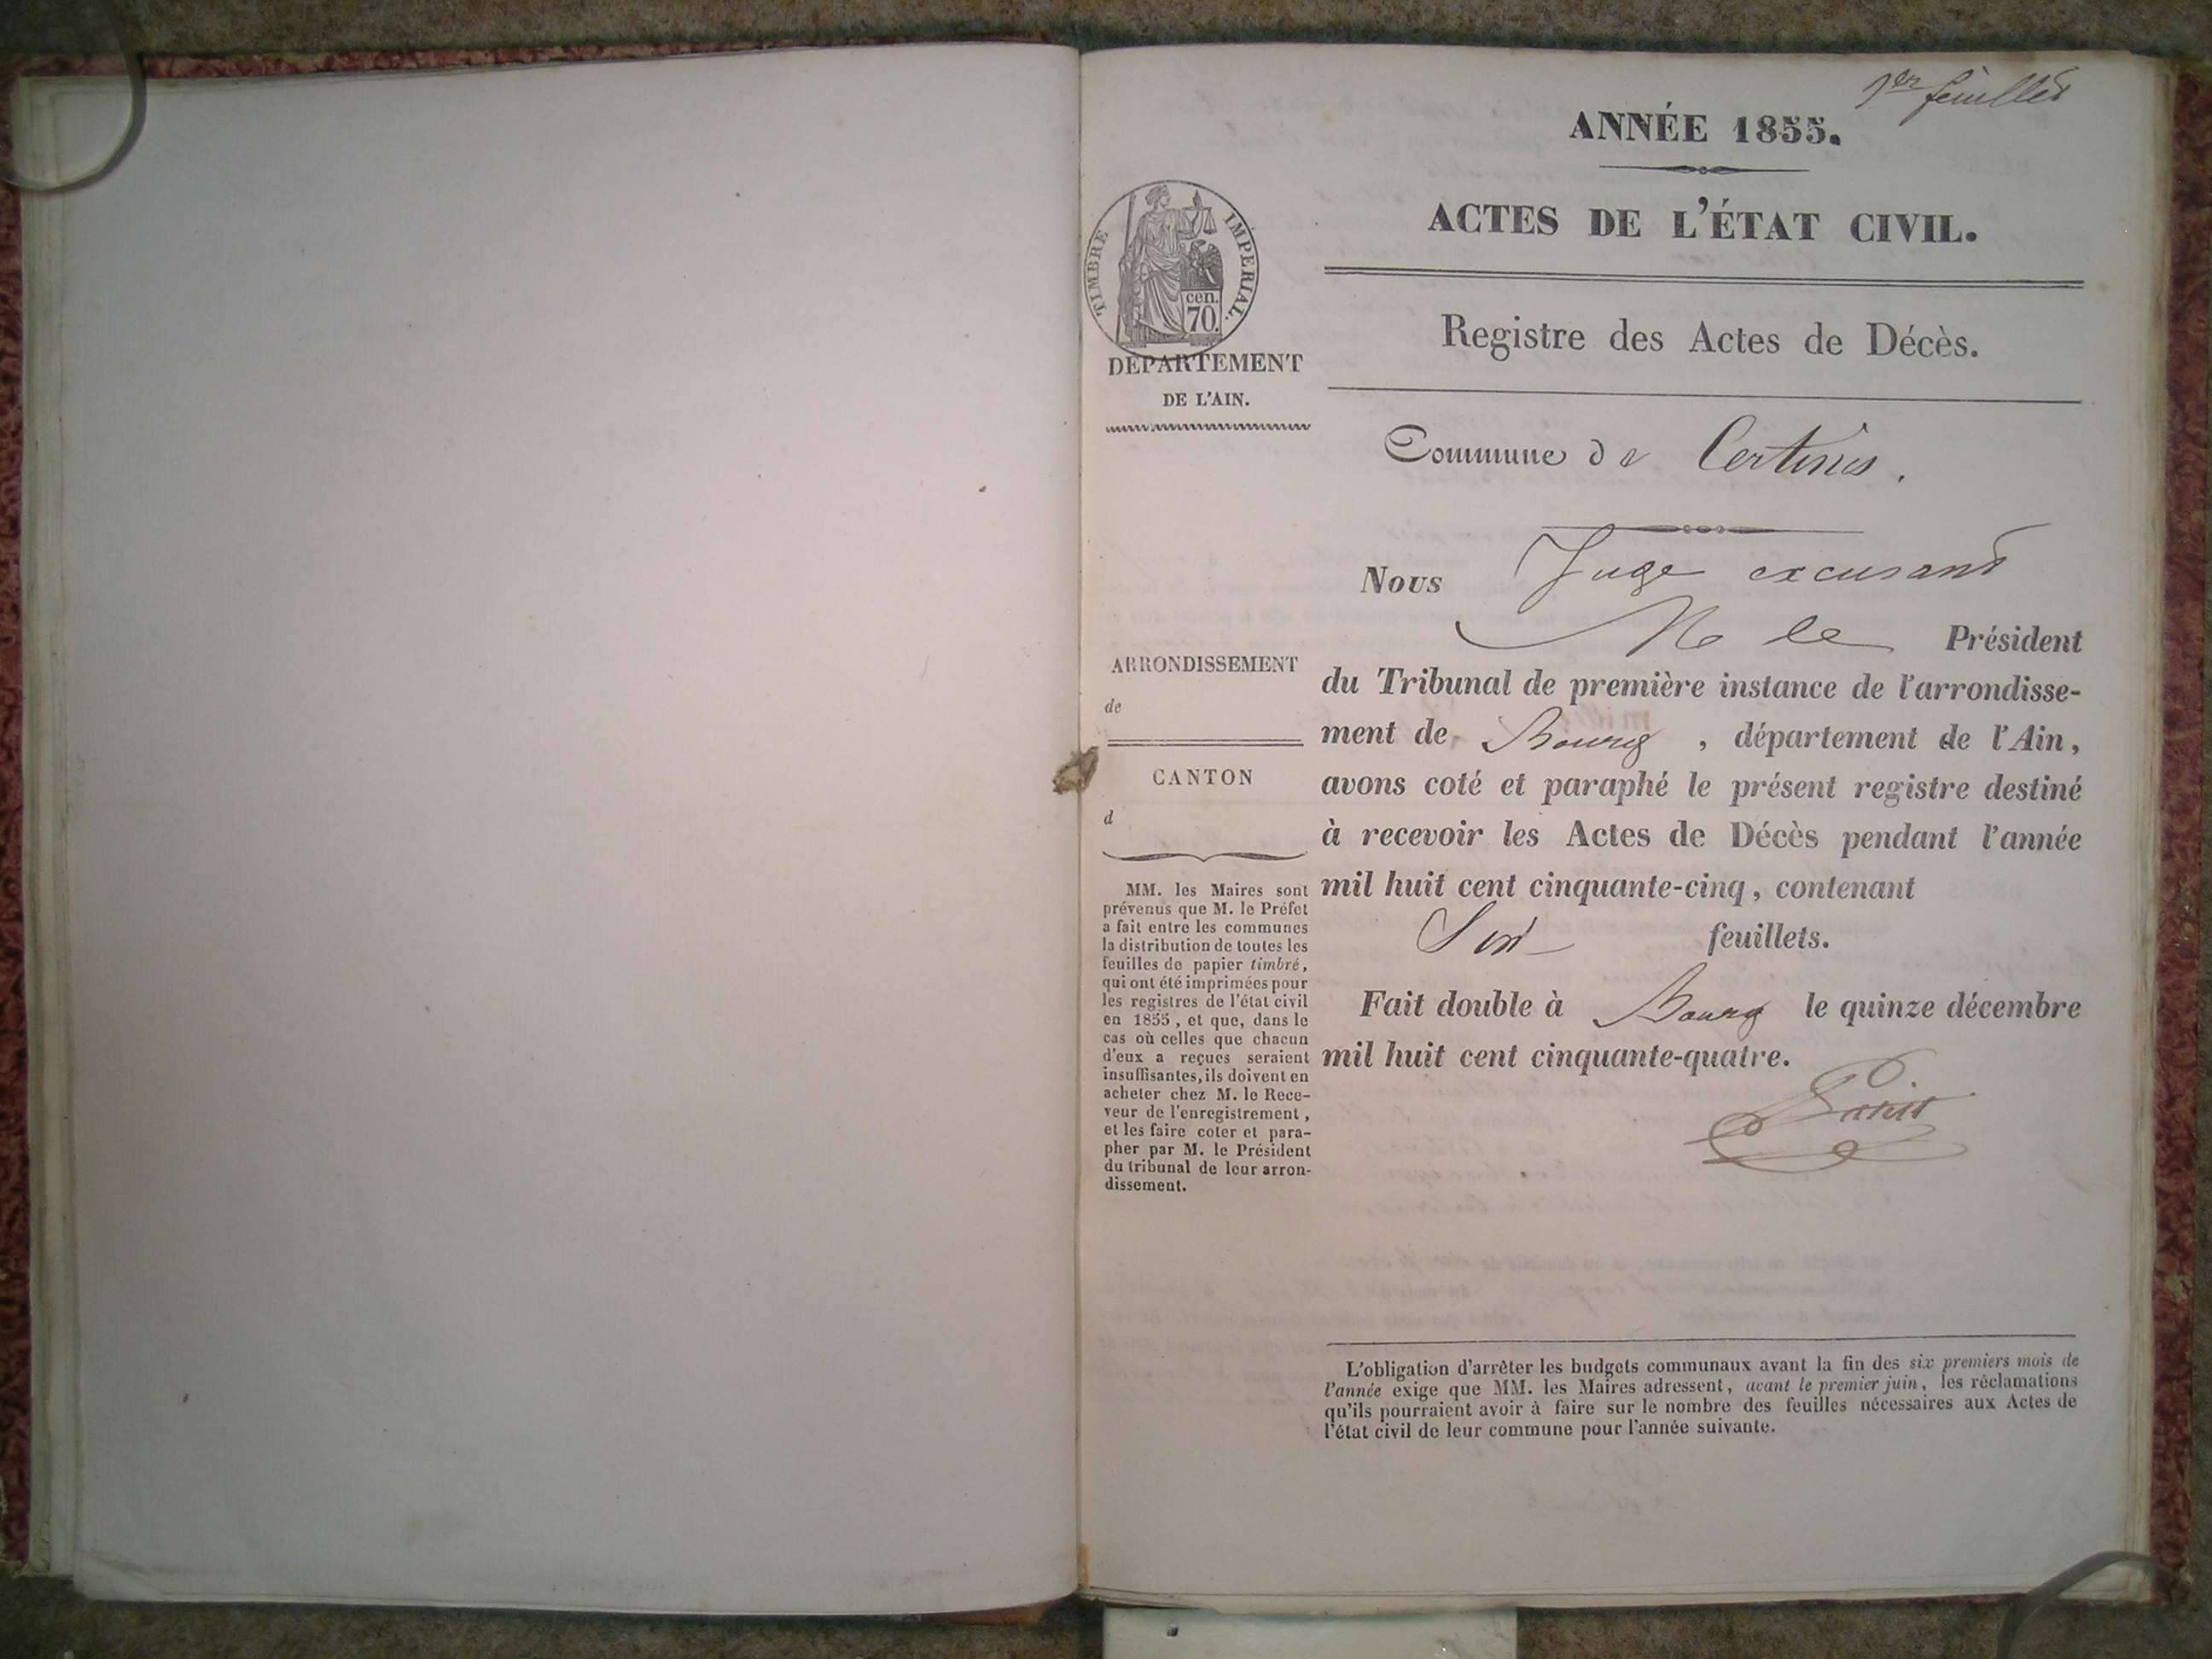 1er feuillet
ANNÉE 1855.
ACTES DE L'ÉTAT CIVIL.
TIMBRE IMPERIAL.
cen.
70.
Registre des Actes de Décès.
DÉPARTEMENT
DE L'AIN.
Commune de Certines.
Nous Juge excusant
M le Président
du Tribunal de première instance de l'arrondisse-
ment de Bourg, département de l'Ain,
avons coté et paraphé le présent registre destiné
à recevoir les Actes de Décès pendant l'année
mil huit cent cinquante-cinq, contenant
Six feuillets.
Fait double à Bourg le quinze décembre
mil huit cent cinquante-quatre.
ARRONDISSEMENT
de
CANTON
d
MM. les Maires sont
prévenus que M. le Préfet
a fait entre les communes
la distribution de toutes les
feuilles de papier timbré,
qui ont été imprimées pour
les registres de l'état civil
en 1855, et que, dans le
cas où celles que chacun
d'eux a reçues seraient
insuffisantes, ils doivent en
acheter chez M. le Rece-
veur de l'enregistrement,
et les faire coter et para-
pher par M. le Président
du tribunal de leur arron-
dissement.
L'obligation d'arrêter les budgets communaux avant la fin des six premiers mois de
l'année exige que MM. les Maires adressent, avant le premier juin, les réclamations
qu'ils pourraient avoir à faire sur le nombre des feuilles nécessaires aux Actes de
l'état civil de leur commune pour l'année suivante.